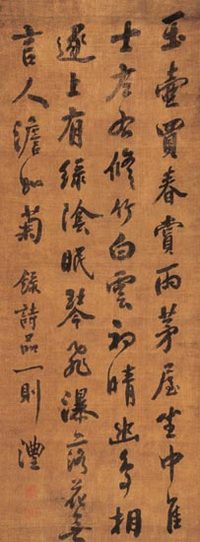 玉壺買春賞雨茅屋坐中佳
士左右修竹白雲初晴幽鳥相
逐上有綠陰眠琴飛瀑落花無
言人澹如菊 錄詩品一則 澧